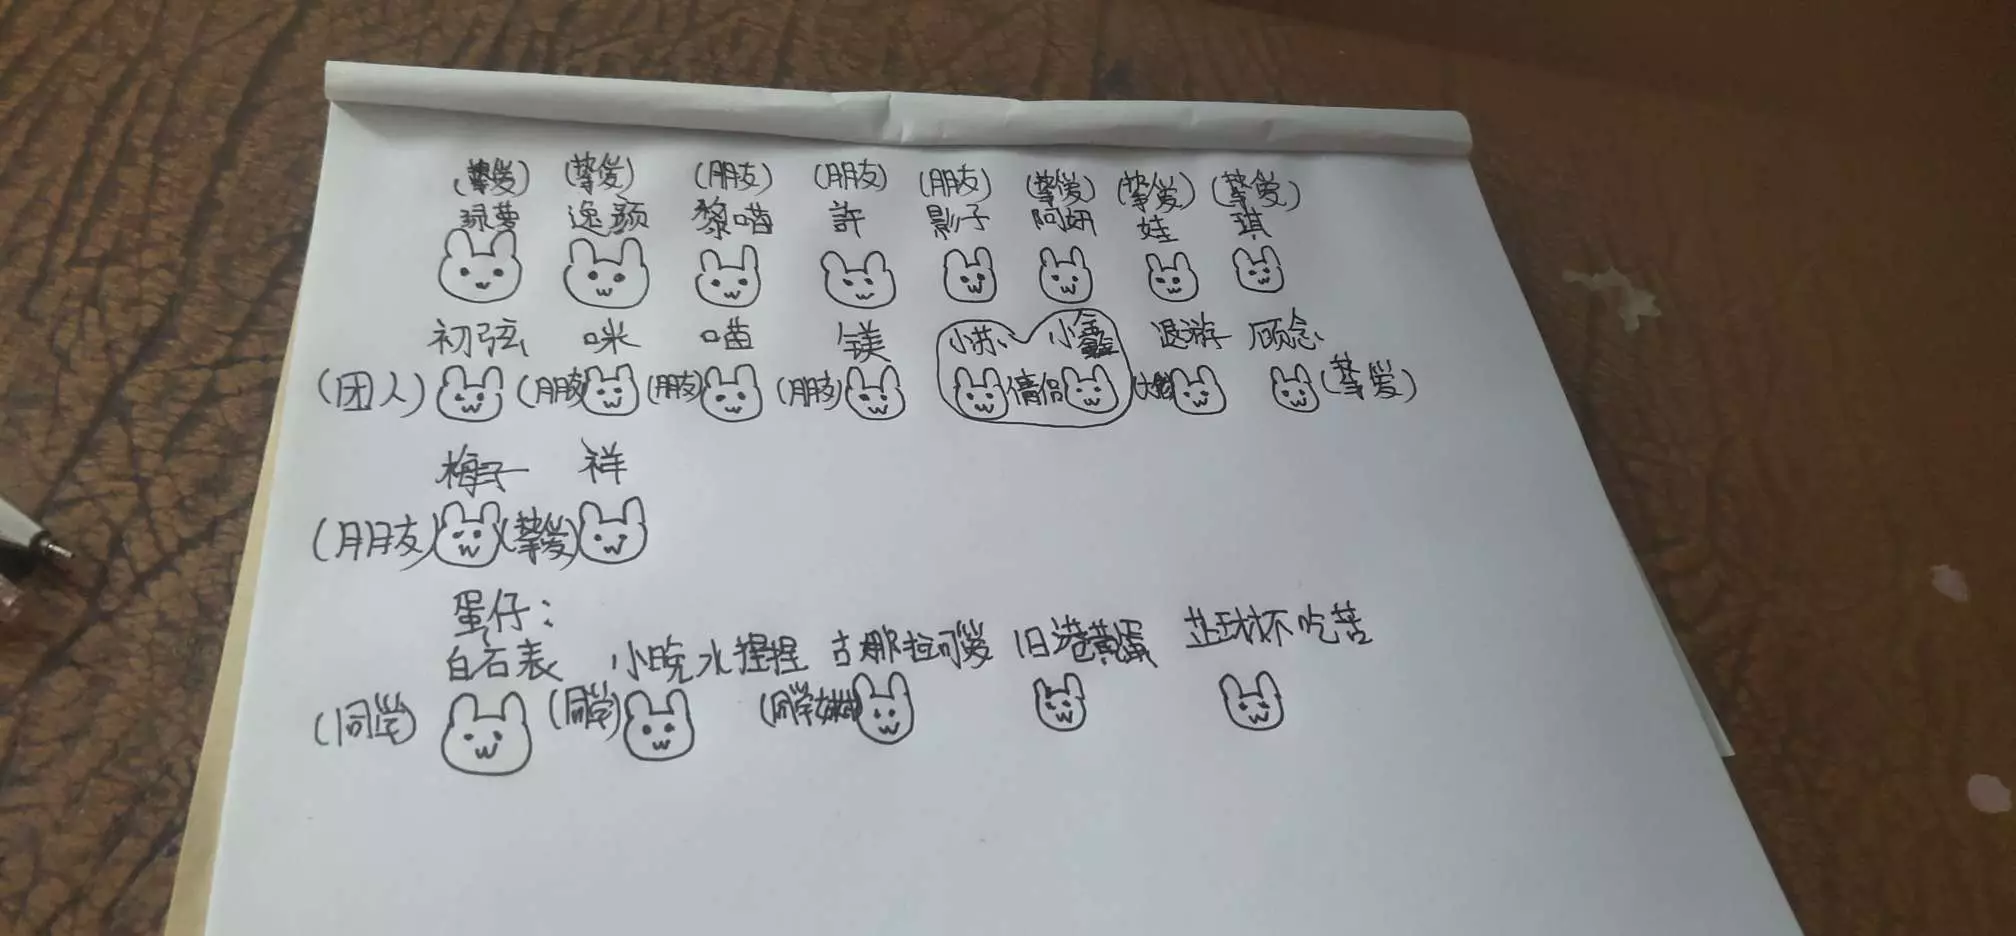 (挚爱) (挚爱) (朋友) (朋友) (朋友) (挚爱) (挚爱) (挚爱)
绿萝 逸颜 黎喵 許 影子 阿妍 娃 琪
初弦 咪 喵 镁 小苏 小鑫 退游 顾念
(团人) (朋友) (朋友) (朋友) 情侣 (挚爱)
梅子 祥
(朋友) (挚爱)
蛋仔:
白石表 小晚 水捏捏 古那拉可爱 旧港黄蛋 芷球杯 吃苦
(同学) (同学) (同学